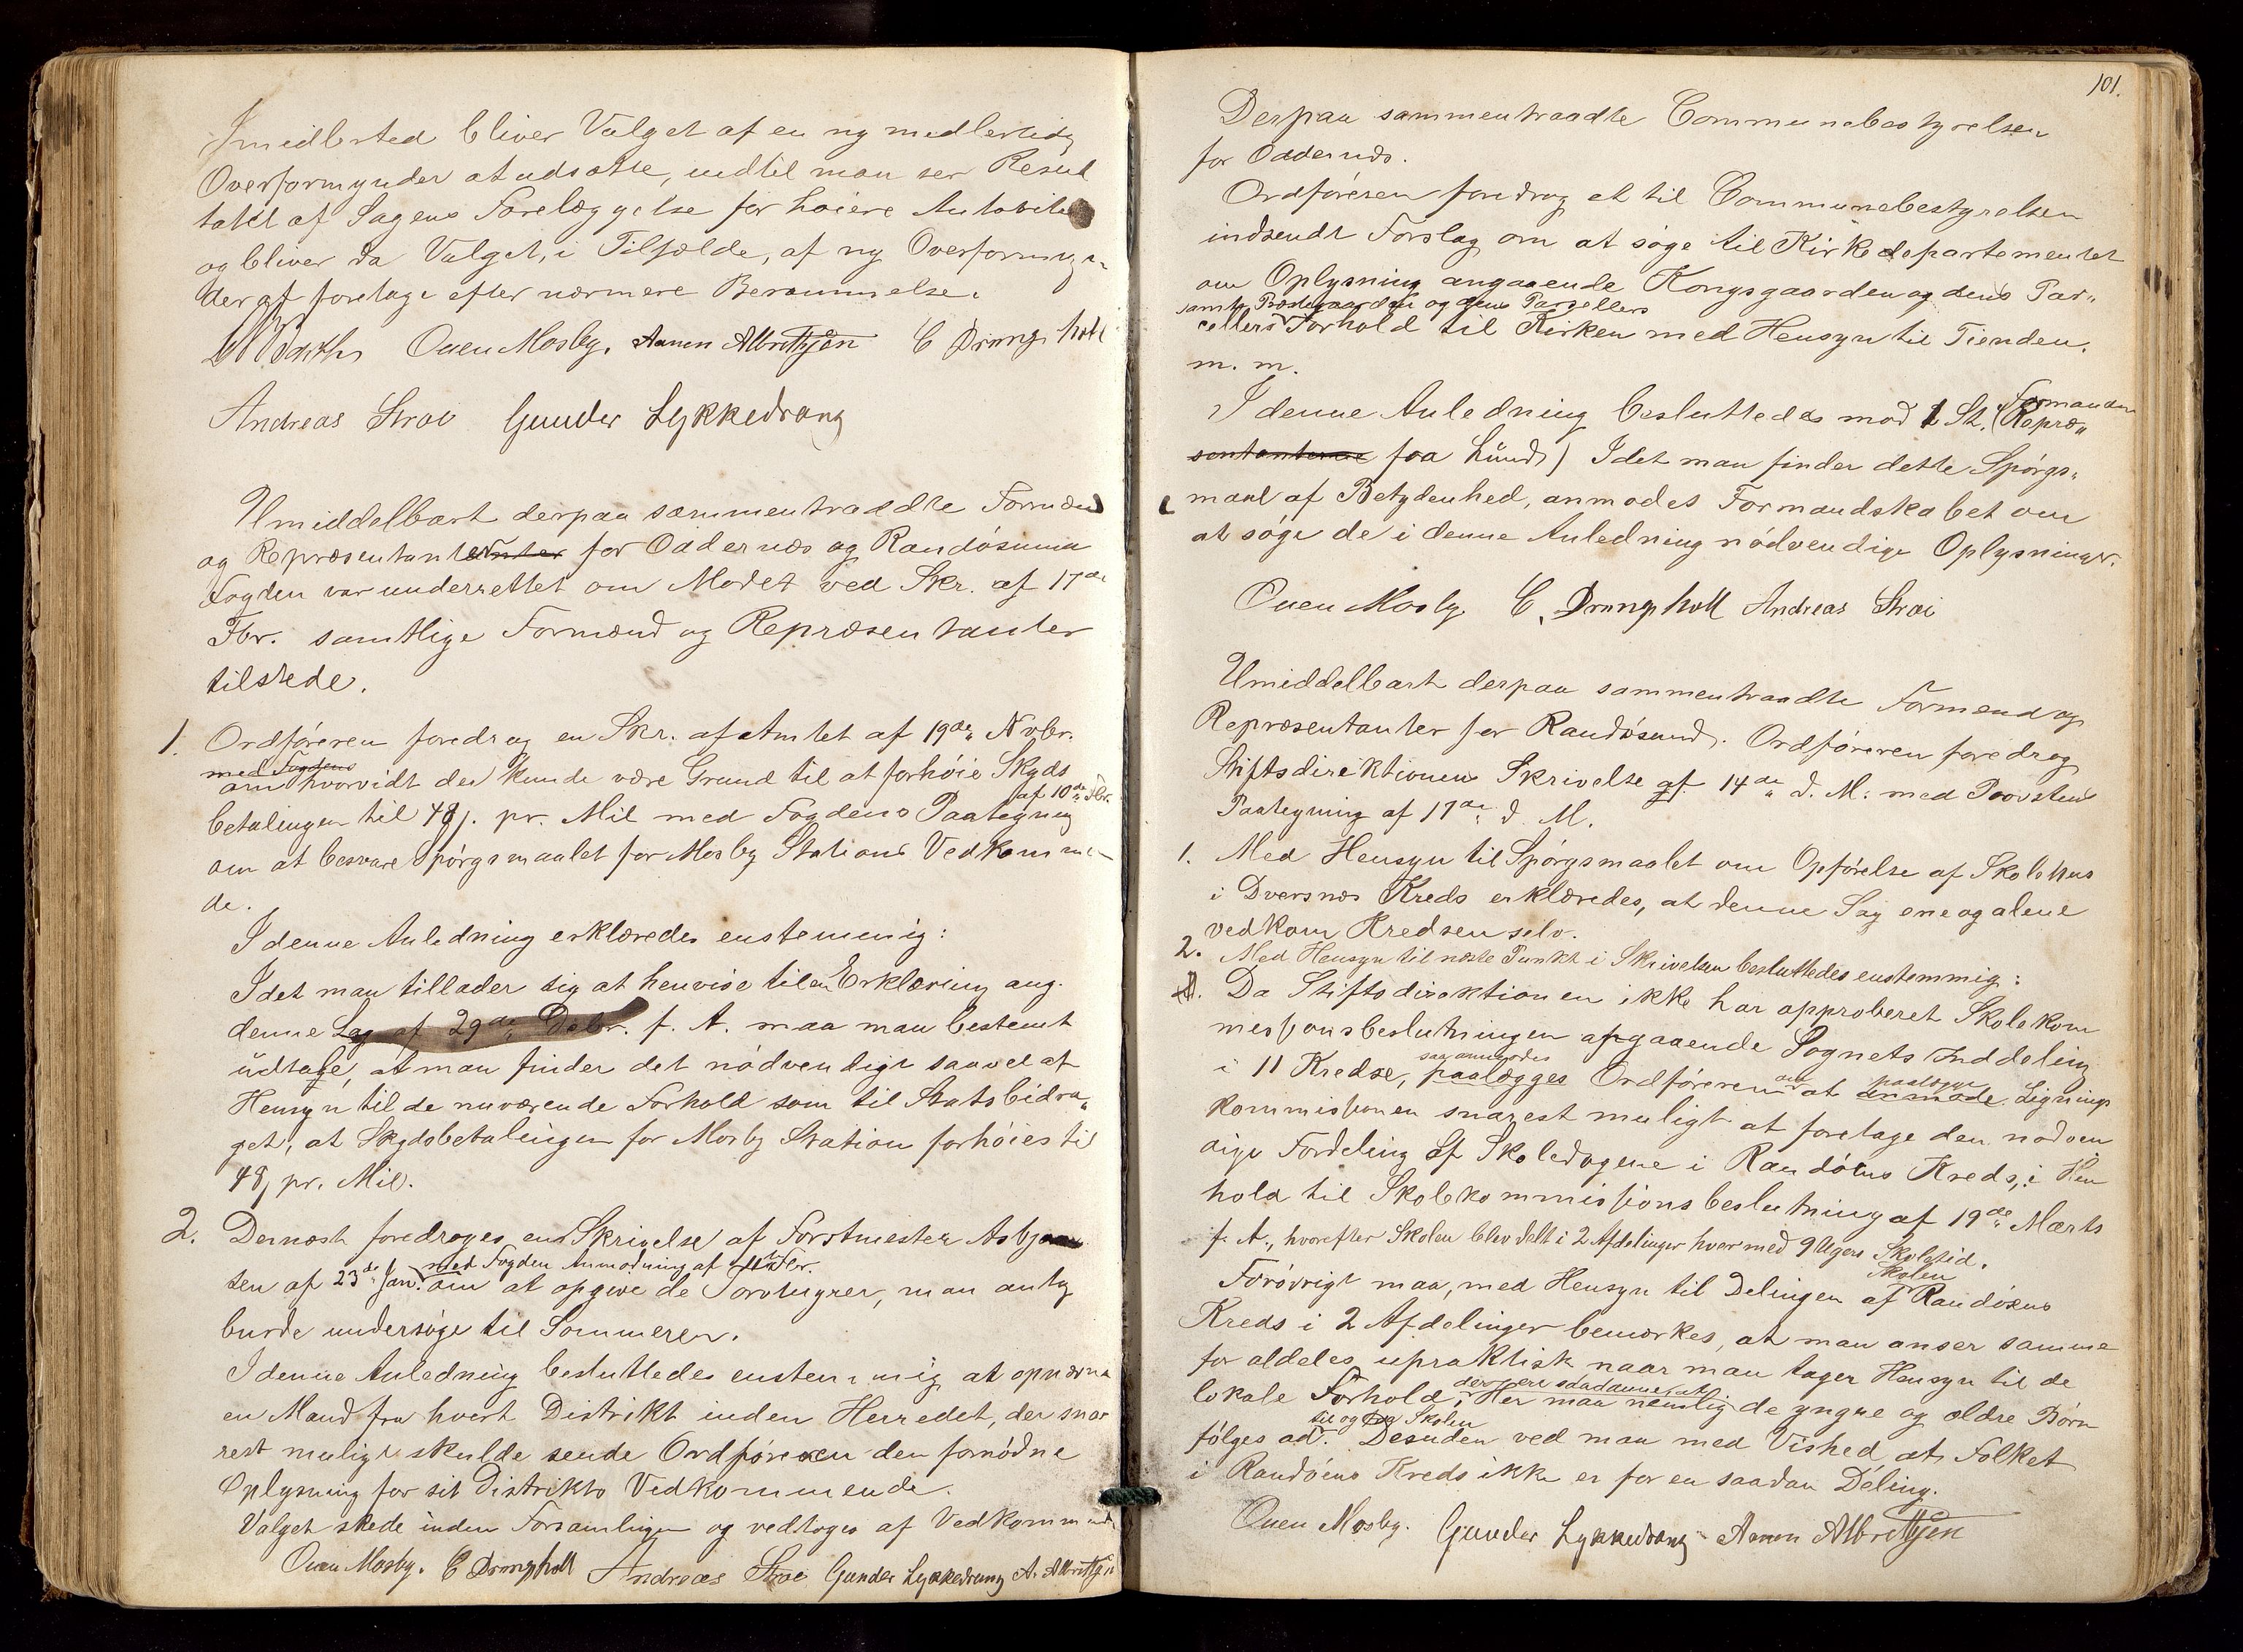 Imidlertid bliver Valget af en ny midlertidig
Overformynder at udsætte, indtil man ser Resul
tatet af Sagens Forelæggelse for høiere Autorite
og bliver da Valget, i Tilfælde, af ny Overformyn-
der at foretage efter nærmere Berammelse.
Ouen Mosby. Aanen Albretsen C Drangsholt
Andreas Strai Gunder Lykkedrang
Umiddelbart derpaa sammentraadte Formænd
og Repræsentanter for Oddernæs og Randøsund
Fogden var underrettet om Mødet ved Skr. af 17de
Fbr. samtlige Formænd og Repræsentanter
tilstede.
1. Ordføreren foredrog en Skr. af Amtet af 19de Novbr.
med Fogdens
om hvorvidt der kunde være Grund til at forhøie Skyds
betalingen til 48 pr. Mil med Fogdens Paategning af 10de Fbr.
om at besvare Spørgsmaalet for Mosby Stations Vedkommen-
de.
I denne Anledning erklæredes enstemmig:
Idet man tillader sig at henvise til en Erklæring ang.
denne Sag af 29de Debr. f. A. maa man bestemt
udtale, at man finder det nødvendigt saavel af
Hensyn til de nuværende Forhold som til Statsbidra„
get, at Skydsbetalingen for Mosby Station forhøies til
48 pr. Mil.
2. Dernæst foredroges en Skrivelse af Forstmester Asbjørn
med Fogden Anmodning af Fbr.
sen af 23de Jan. om at opgive de Torvmyrer, man antog
burde undersøges til Sommeren.
I denne Anledning besluttedes enstemmig at opnævne
en Mand fra hvert Distrikt inden Herredet, der sna
rest muligt skulde sende Ordføreren den fornødne
Oplysning for sit Distrikts Vedkommende.
Valget skede inden Forsamlingen og vedtoges af Vedkommende
Ouen Mosby. C Drangsholt Andreas Strai Gunder Lykkedrang A. Albretsen
101.
Derpaa sammentraadte Communebestyrelsen
for Oddernæs.
Ordføreren foredrog et til Communebestyrelsen
indsendt Forslag om at søge til Kirkedepartementet
om Oplysning angaaende Kongsgaarden og dens Par„
samt Præstegaarden og dens Parzellers
cellers Forhold til Kirken med Hensyn til Tienden.
m. m.
Formanden
I denne Anledning besluttedes mod 1 St. (Repræ„
sentanterne fra Lund) Idet man finder dette Spørgs„
maal af Betydenhed, anmodes Formandskabet om
at søge de i denne Anledning nødvendige Oplysninger.
Ouen Mosby C. Drangsholt Andreas Strai
Umiddelbart derpaa sammentraadte Formænd og
Repræsentanter for Randøsund. Ordføreren foredrog
Stiftsdirektionens Skrivelse af 14de d. M. med Provstens
Paategning af 17de d. M.
1. Med Hensyn til Spørgsmaalet om Opførelse af Skolehus
i Dversnæs Kreds erklæredes, at denne Sag ene og alene
vedkom Kredsen selv.
2. Med Hensyn til næste Punkt i Skrivelsen besluttedes enstemmig:
Da Stiftsdirektionen ikke har approberet Skolekom
missionsbeslutningen angaaende Sognets Inddeling
saa anmodes
i 11 Kredse, paalægges Ordføreren om at anmode paalægge Lignings
kommissionen snarest muligt at foretage den nødven
dige Fordeling af Skoledagene i Randøens Kreds, i Hen
hold til Skolekommissionsbeslutning af 19de Marts
f. A., hvorefter Skolen blev delt i 2 Afdelinger hver med 9 Ugers Skoletid.
Skolen
Forøvrigt maa, med Hensyn til Delingen af Randøens
Kreds i 2 Afdelinger bemærkes, at man anser samme
for aldeles upraktisk naar man tager Hensyn til de
der ere saadanne, at
lokale Forhold, Her maa nemlig de yngre og ældre Børn
til og fra Skolen
følges ad. Desuden ved man med Vished, at Folket
i Randøens Kreds ikke er for en saadan Deling.
Ouen Mosby. Gunder Lykkedrang Aanen Albretsen